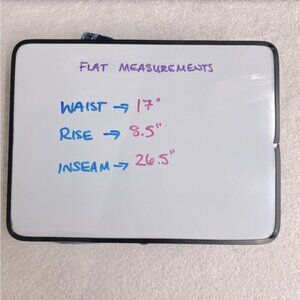 FLAT MEASUREMENTS
WAIST → 17"
RISE → 8.5"
INSEAM → 26.5"